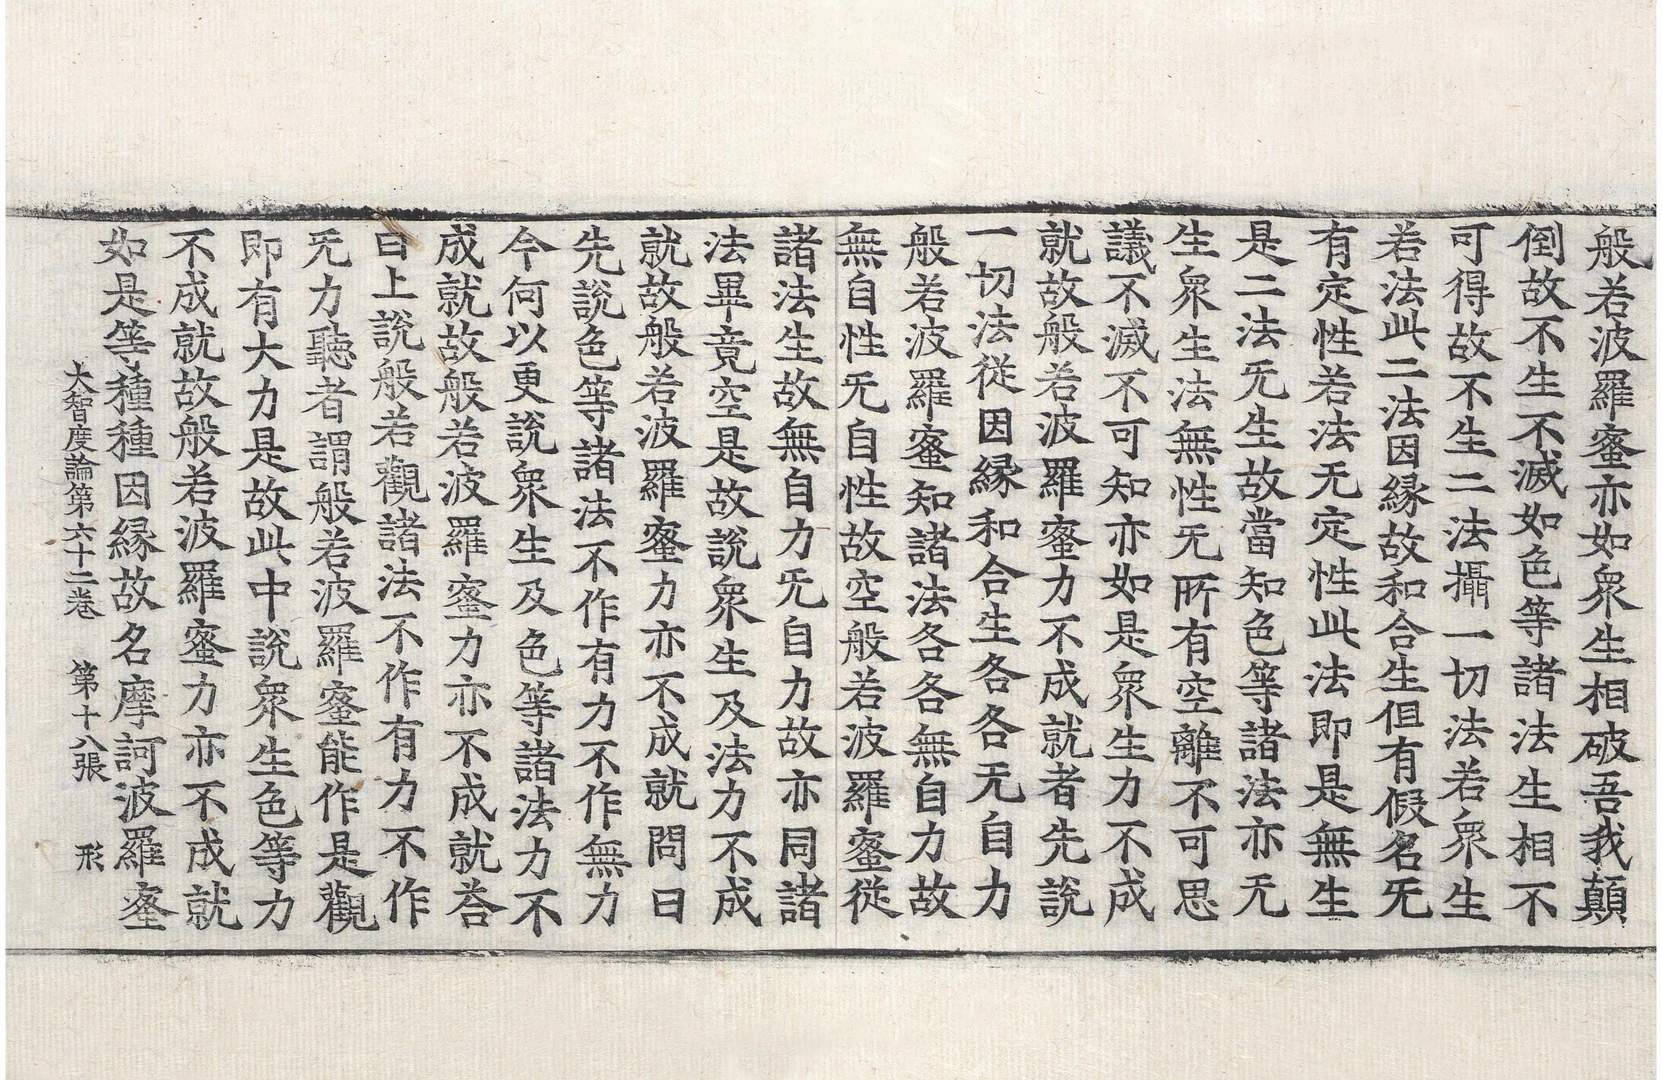 般若波羅蜜亦如衆生相破吾我顛
倒故不生不滅如色等諸法生相不
可得故不生二法攝一切法若衆生
若法此二法因緣故和合生但有假名旡
有定性若法无定性此法即是無生
是二法旡生故當知色等諸法亦无
生衆生法無性旡所有空離不可思
議不滅不可知亦如是衆生力不成
就故般若波羅蜜力不成就者先說
一切法從因緣和合生各各旡自力
般若波羅蜜知諸法各各無自力故
無自性旡自性故空般若波羅蜜從
諸法生故無自力旡自力故亦同諸
法畢竟空是故說衆生及法力不成
就故般若波羅蜜力亦不成就問曰
先說色等諸法不作有力不作無力
今何以更說衆生及色等諸法力不
成就故般若波羅蜜力亦不成就荅
曰上說般若觀諸法不作有力不作
旡力聽者謂般若波羅蜜能作是觀
即有大力是故此中說衆生色等力
不成就故般若波羅蜜力亦不成就
如是等種種因緣故名摩訶波羅蜜
大智度論第六十二卷 第十八張 形